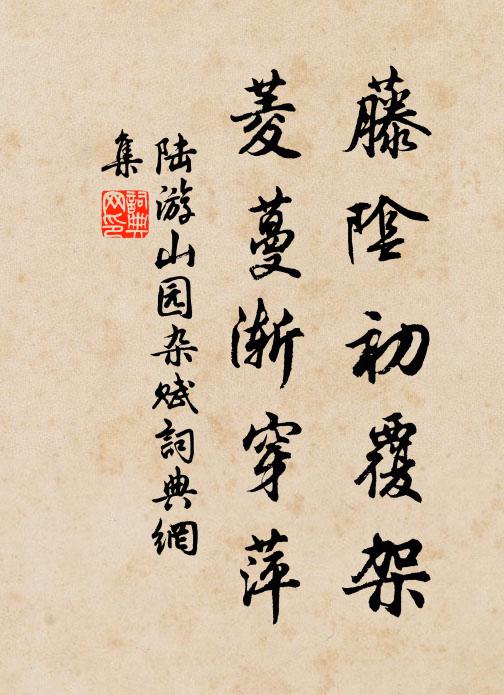 藤陰初覆架
菱蔓渐穿萍
陆游山园杂赋詞典網
集
詞典
网印